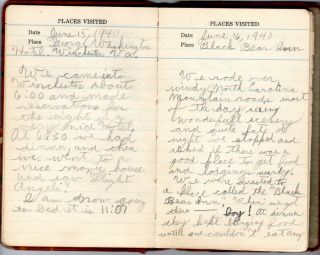 PLACES VISITED
Date June 15, 1940
Place George Washington
Hotel Winchester Va.
We came into
Winchester about
6:00 and made
reservations for
the night in a
very nice hotel.
At 6:30 we had
dinner, and then
we went to a
nice movie house
and saw "Flight
Angels".
I am now going
to bed it is 11:07
PLACES VISITED
Date June 16, 1940
Place Black Bear Inn
We rode over
windy North Carolina
Mountain roads most
of the day seeing
Wonderful scenery
and quite late at
night we stopped and
asked if there was a
good place to get food
and lodging nearby.
We were directed to
a place called the "Black
Bear Inn", When we got
there boy! At dinner
they kept bringing food
until one couldn't eat any